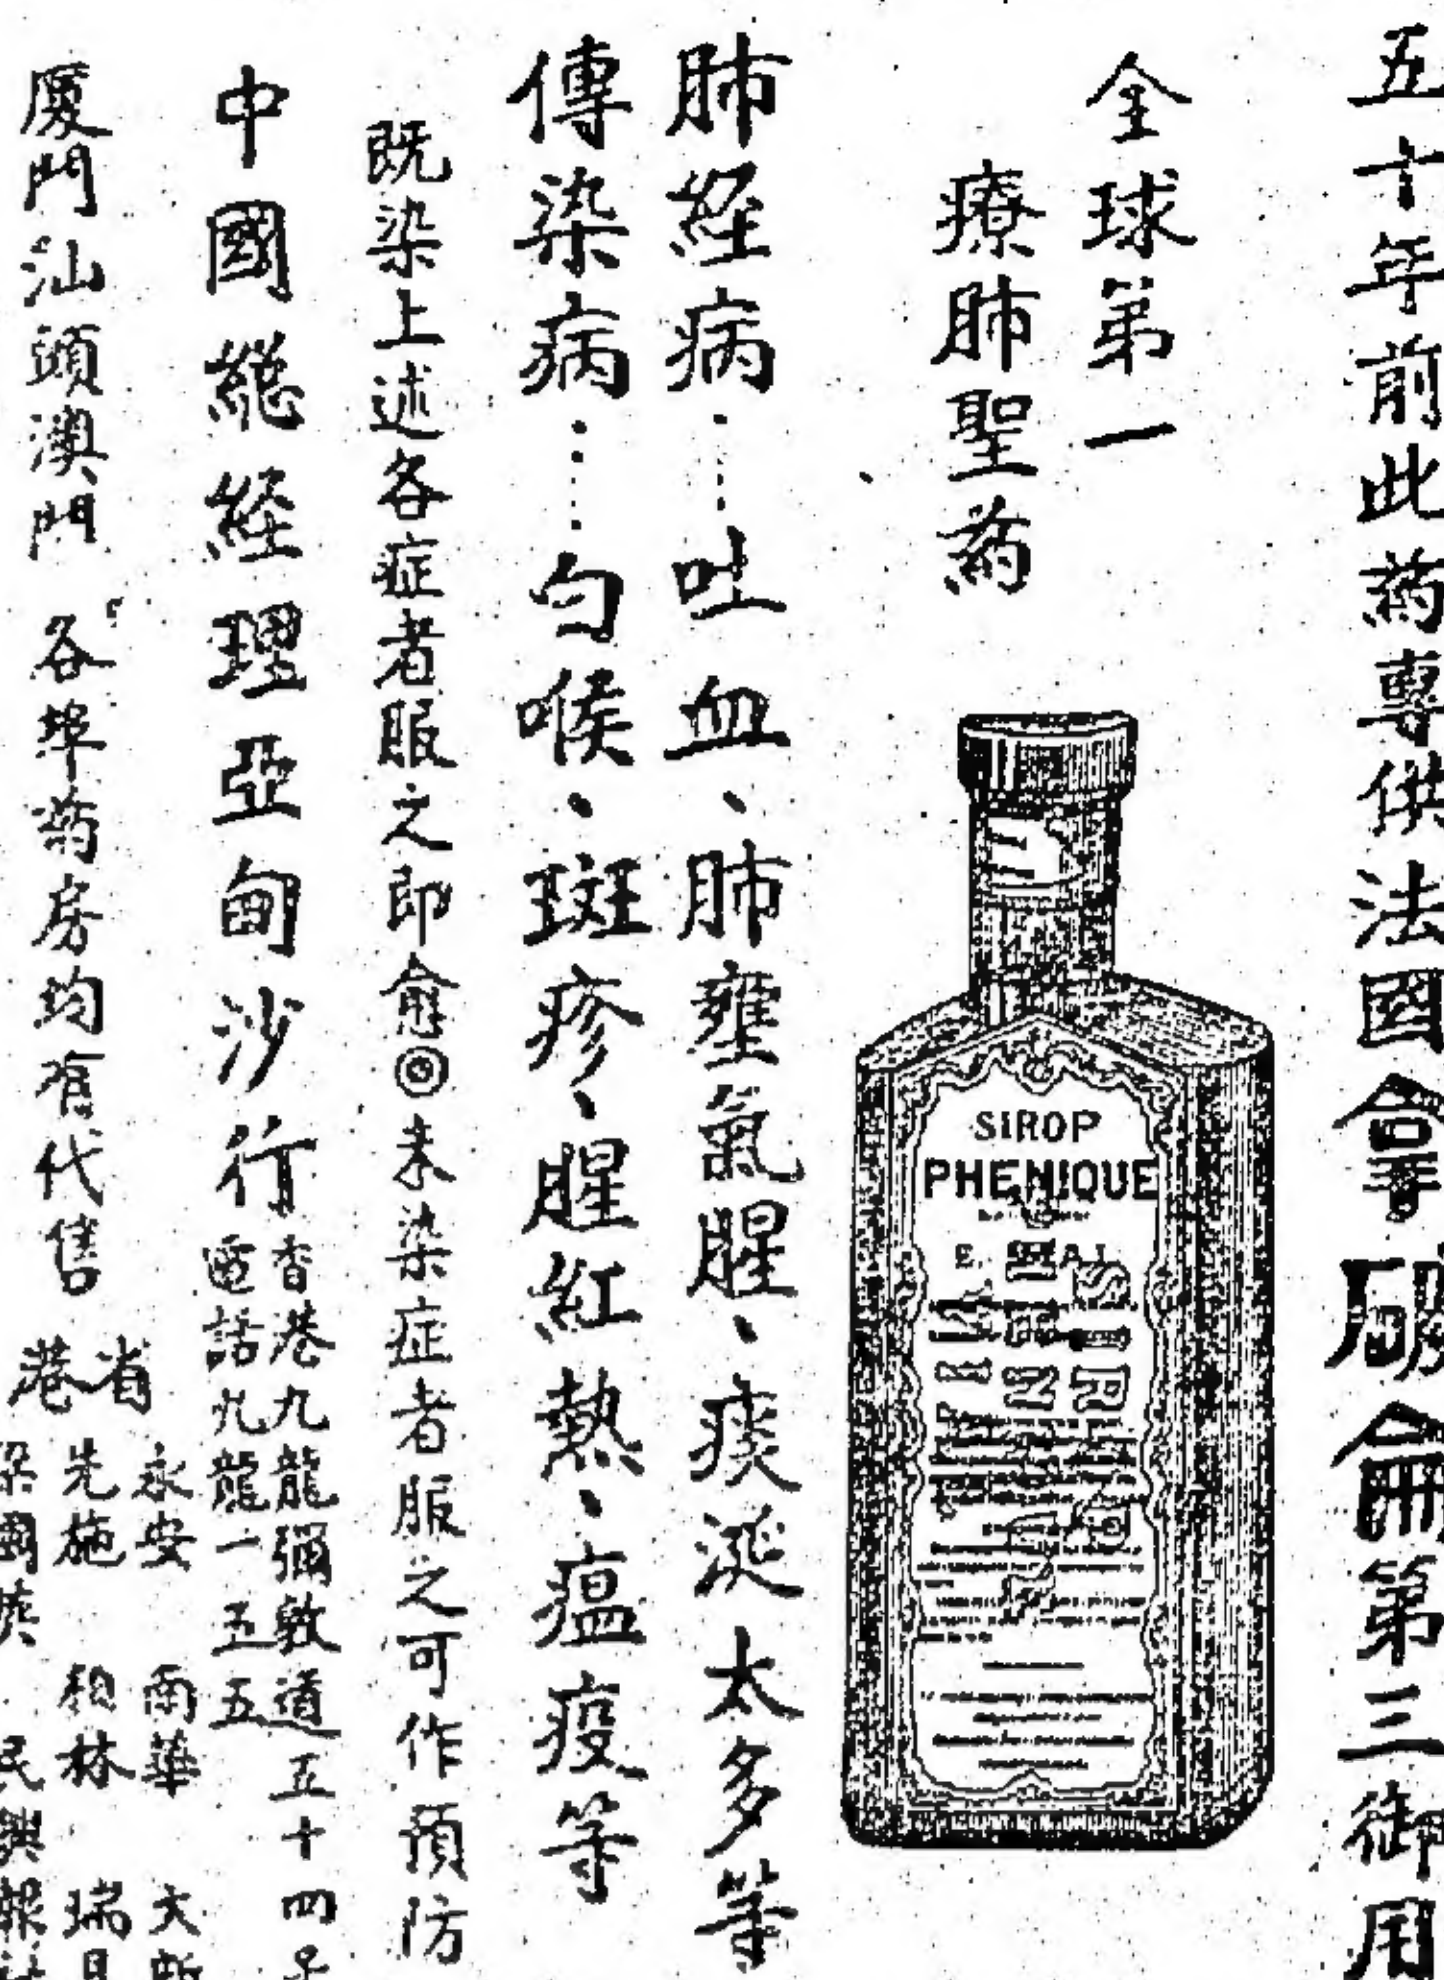 五十年前此葯專供法國拿破侖第三御用
全球第一
療肺聖葯
SIROP
PHENIQUE
肺経病……吐血、肺壅氣腥、痰涎太多等
傳染病……勻喉、斑疹、腥紅熱、瘟疫等
既染上述各症者服之即愈◎未染症者服之可作預防
中國総経理亞甸沙行
香港九龍彌敦道五十四号
電話九龍一五五
廈門汕頭澳門 各埠葯房均有代售
省港
永安 南華 大新
先施 柏林 瑞昌